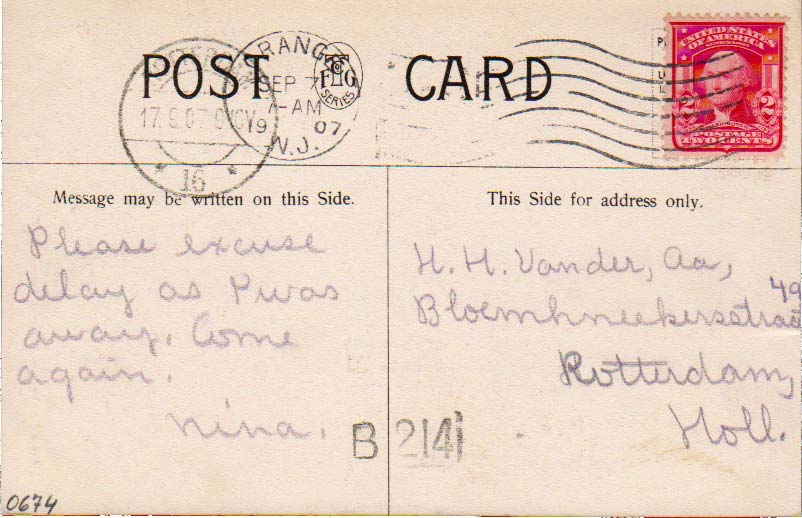 POST CARD
ORANGE
SEP 7
7-AM
19 07
N.J.
F G
SERIES
17.9.07
16
UNITED STATES
OF AMERICA
2 2
POSTAGE
TWO CENTS
Message may be written on this Side.
Please excuse
delay as I was
away. Come
again.
Nina.
This Side for address only.
H. H. Vander, Aa,
49
Rotterdam,
Holl.
B 214
0674